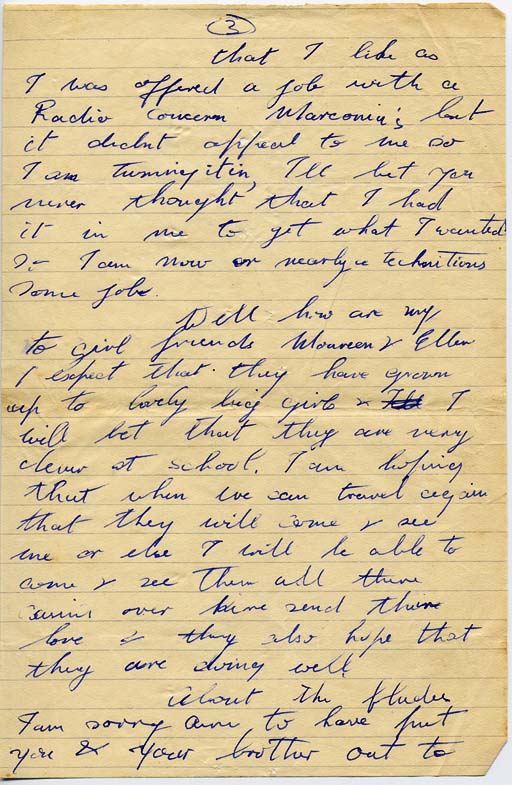 3
that I like as
I was offered a job with a
Radio Concern Marconia's but
it didnt appeal to me so
I am turning it in, I'll bet you
never thought that I had
it in me to get what I wanted
I am now or nearly a technitions
some job.
Well how are my
to girl friends Maureen & Ellen
I expect that they have grown
up to lovely big girls & I
will bet that they are very
clever at school. I am hoping
that when we can travel again
that they will come & see
me or else I will be able to
come & see them all there
over here send there
love & they also hope that
they are doing well.
About the
I am sorry to have put
you & your brother out to